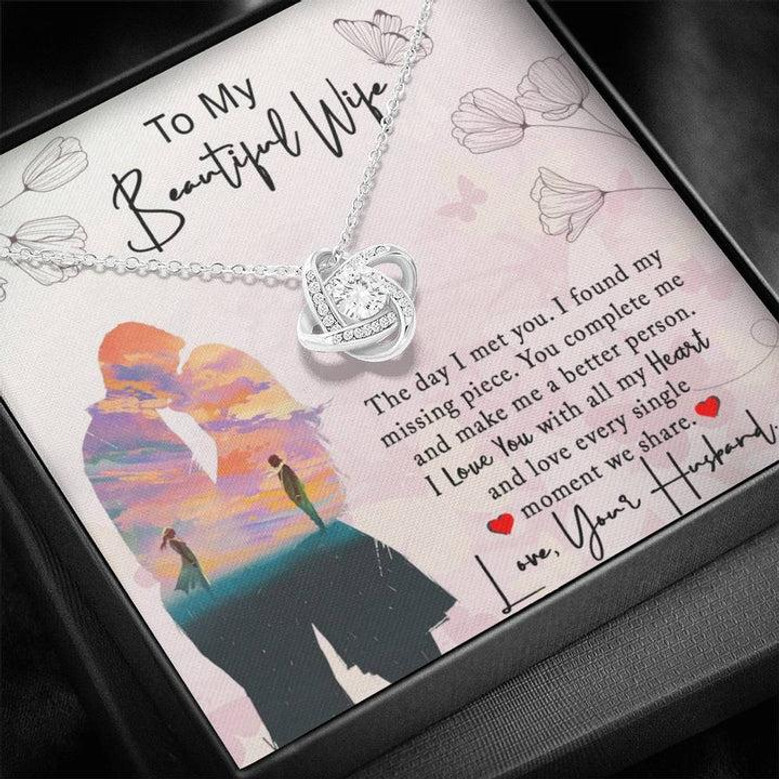 To My
Beautiful Wife
The day I met you. I found my
missing piece. You complete me
and make me a better person.
I Love You with all my Heart
and love every single
moment we share.
Love, Your Husband.